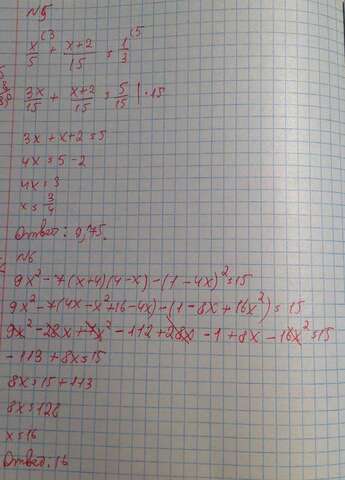 N5
x/5 (3 + x+2/15 = 1/3 (5
3x/15 + x+2/15 = 5/15 | · 15
3x + x+2 = 5
4x = 5 - 2
4x = 3
x = 3/4
Ответ: 0,75.
N6
9x² - 7(x+4)(4-x) - (1-4x)² = 15
9x² - 7(4x-x²+16-4x) - (1-8x+16x²) = 15
9x² - 28x + 7x² - 112 + 28x - 1 + 8x - 16x² = 15
-113 + 8x = 15
8x = 15 + 113
8x = 128
x = 16
Ответ: 16